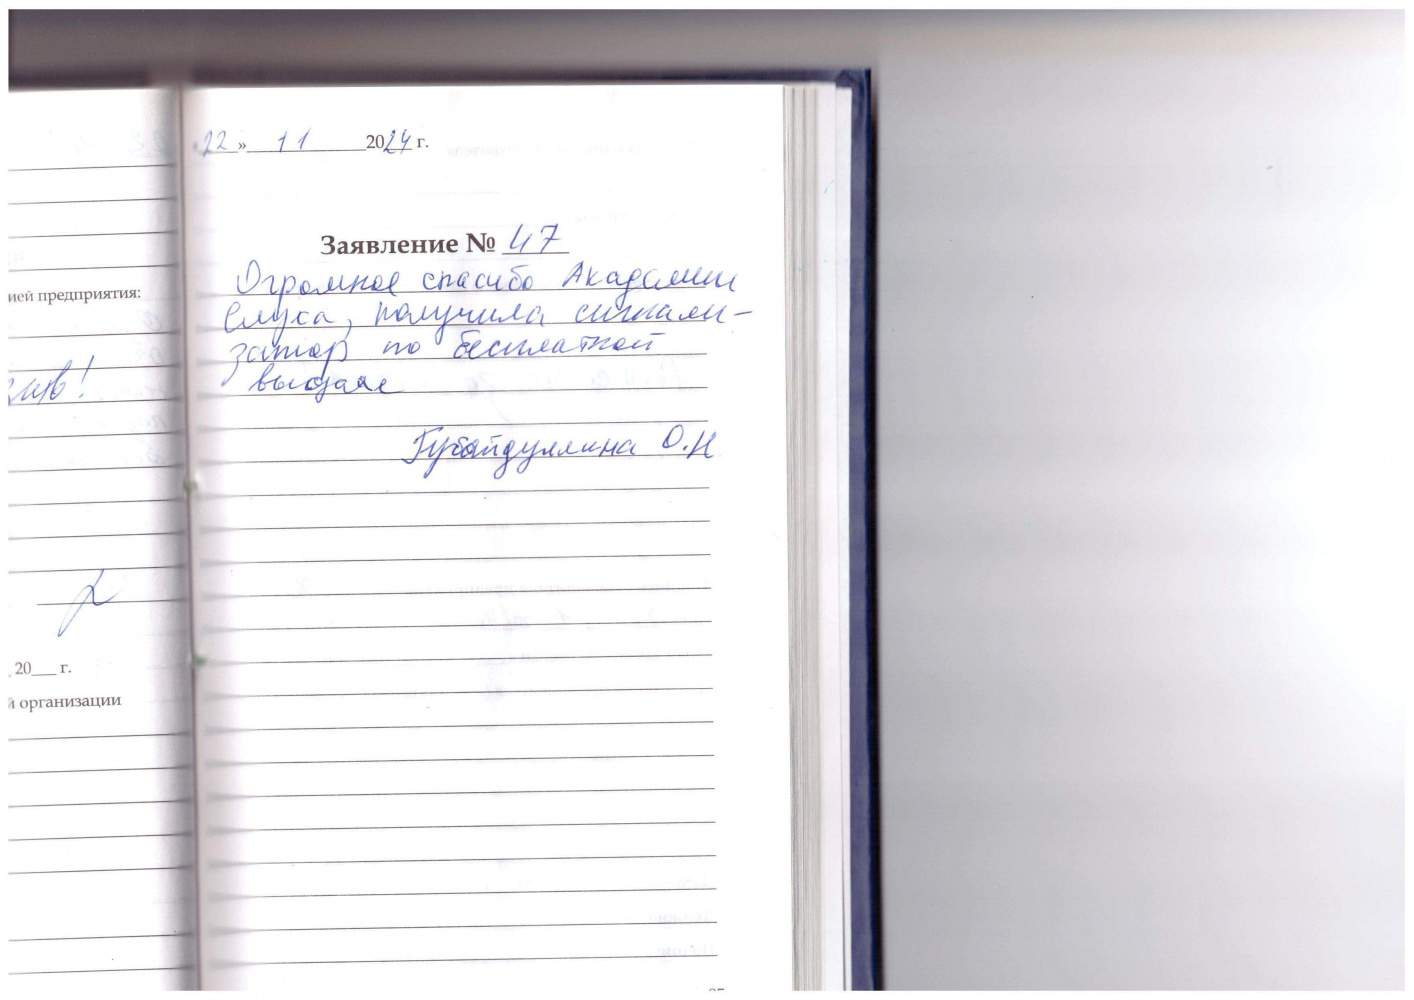 ией предприятия:
20___ г.
й организации
22 » 11 2024 г.
Заявление № 47
Огромное спасибо Академии
Слуха, получила сигнали-
затор по бесплатной
выдаче
Губайдуллина О.Н